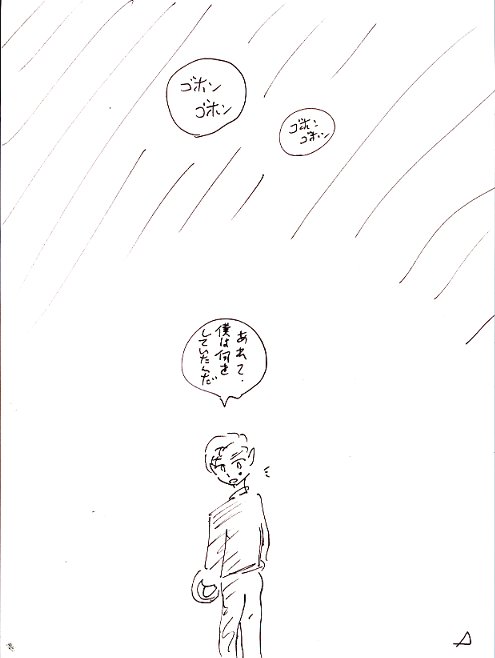 ゴホン
ゴホン
ゴホン
ゴホン
あれて.
僕は何を
していたんだ